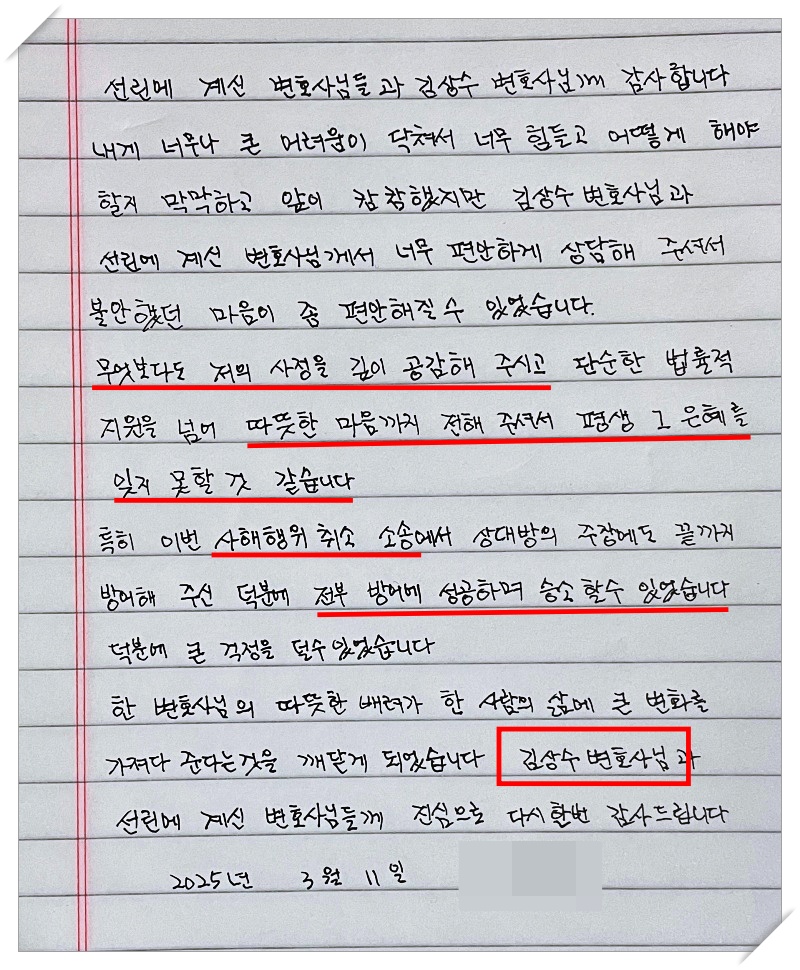 선린에 계신 변호사님들과 김상수 변호사님께 감사합니다
내게 너무나 큰 어려움이 닥쳐서 너무 힘들고 어떻게 해야
할지 막막하고 앞이 캄캄했지만 김상수 변호사님과
선린에 계신 변호사님께서 너무 편안하게 상담해 주셔서
불안했던 마음이 좀 편안해질 수 있었습니다.
무엇보다도 저의 사정을 깊이 공감해 주시고 단순한 법률적
지원을 넘어 따뜻한 마음까지 전해 주셔서 평생 그 은혜를
잊지 못할 것 같습니다
특히 이번 사해행위 취소 소송에서 상대방의 주장에도 끝까지
방어해 주신 덕분에 전부 방어에 성공하며 승소 할수 있었습니다
덕분에 큰 걱정을 덜수있었습니다
한 변호사님의 따뜻한 배려가 한 사람의 삶에 큰 변화를
가져다 준다는것을 깨닫게 되었습니다 김상수 변호사님과
선린에 계신 변호사님들께 진심으로 다시한번 감사드립니다
2025년 3월 11일